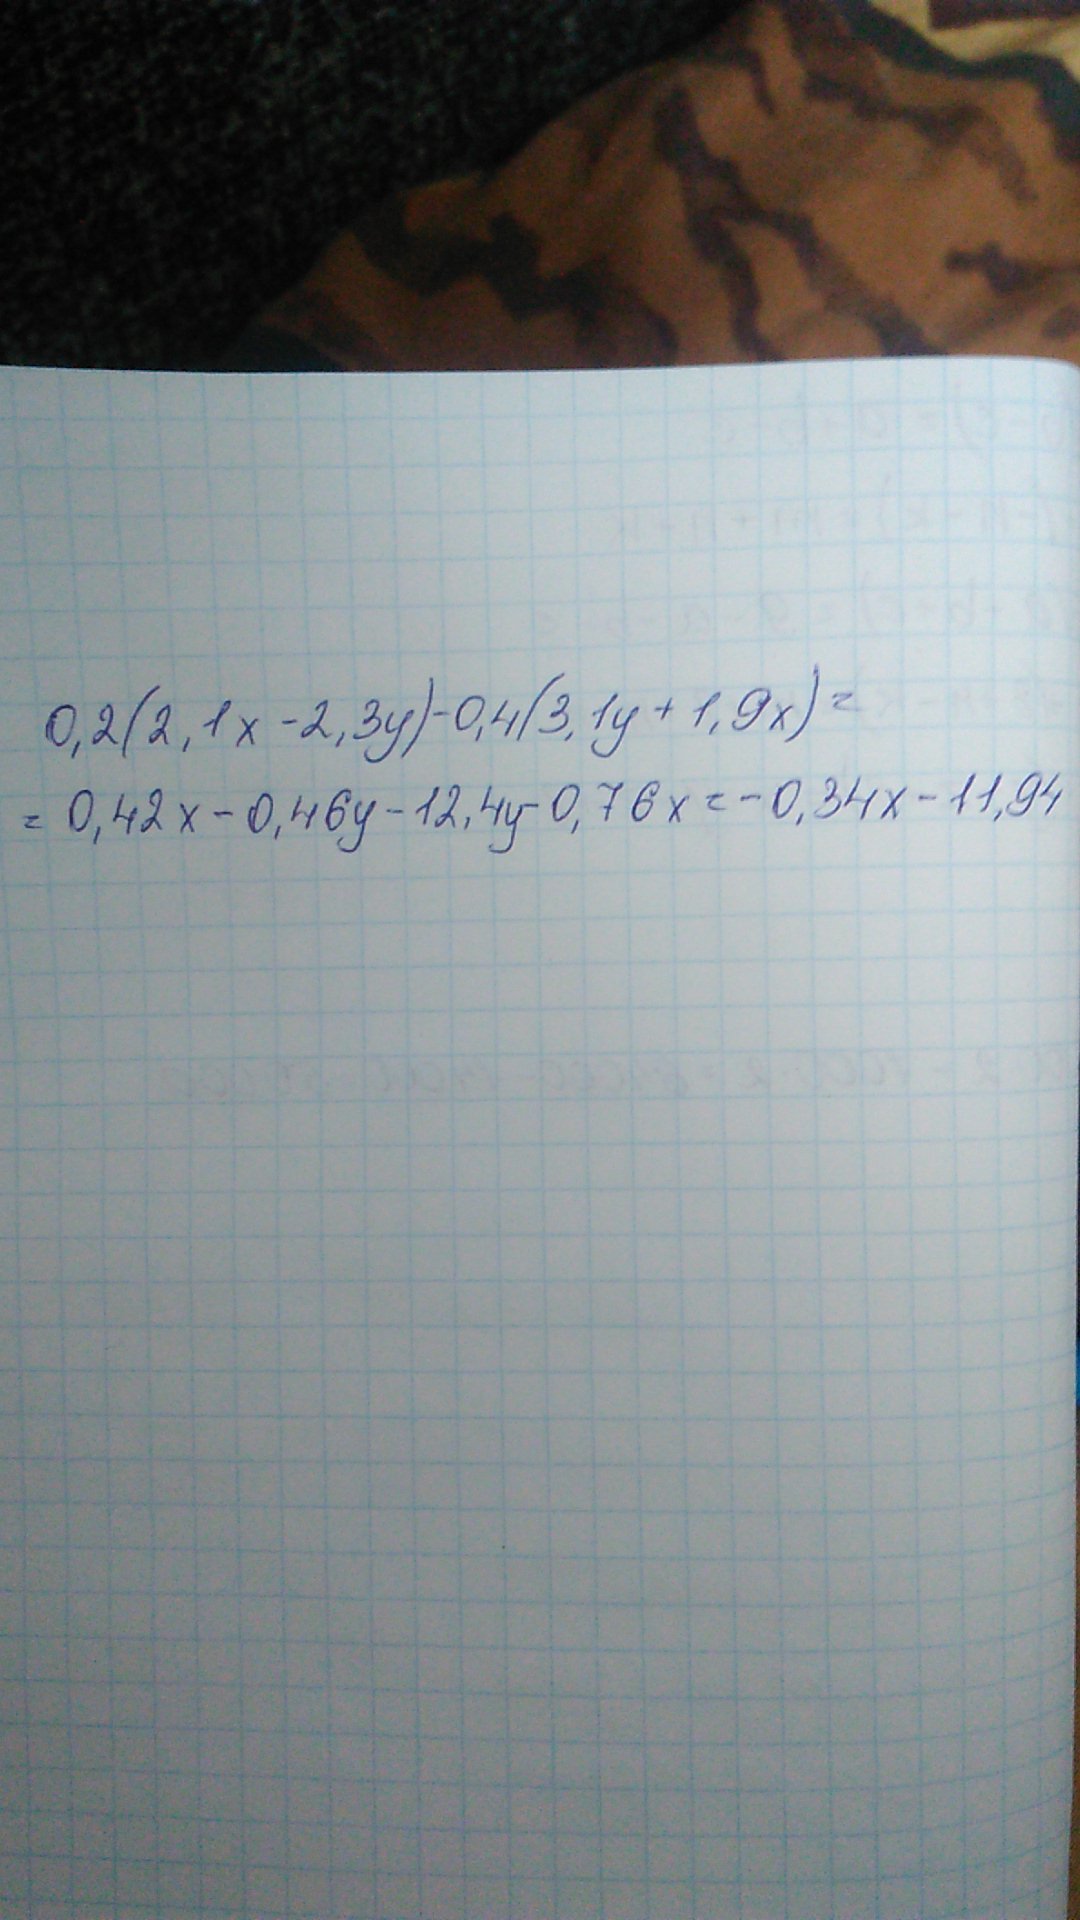 0,2(2,1x-2,3y)-0,4(3,1y+1,9x)=
= 0,42x-0,46y-12,4y-0,76x=-0,34x-11,94